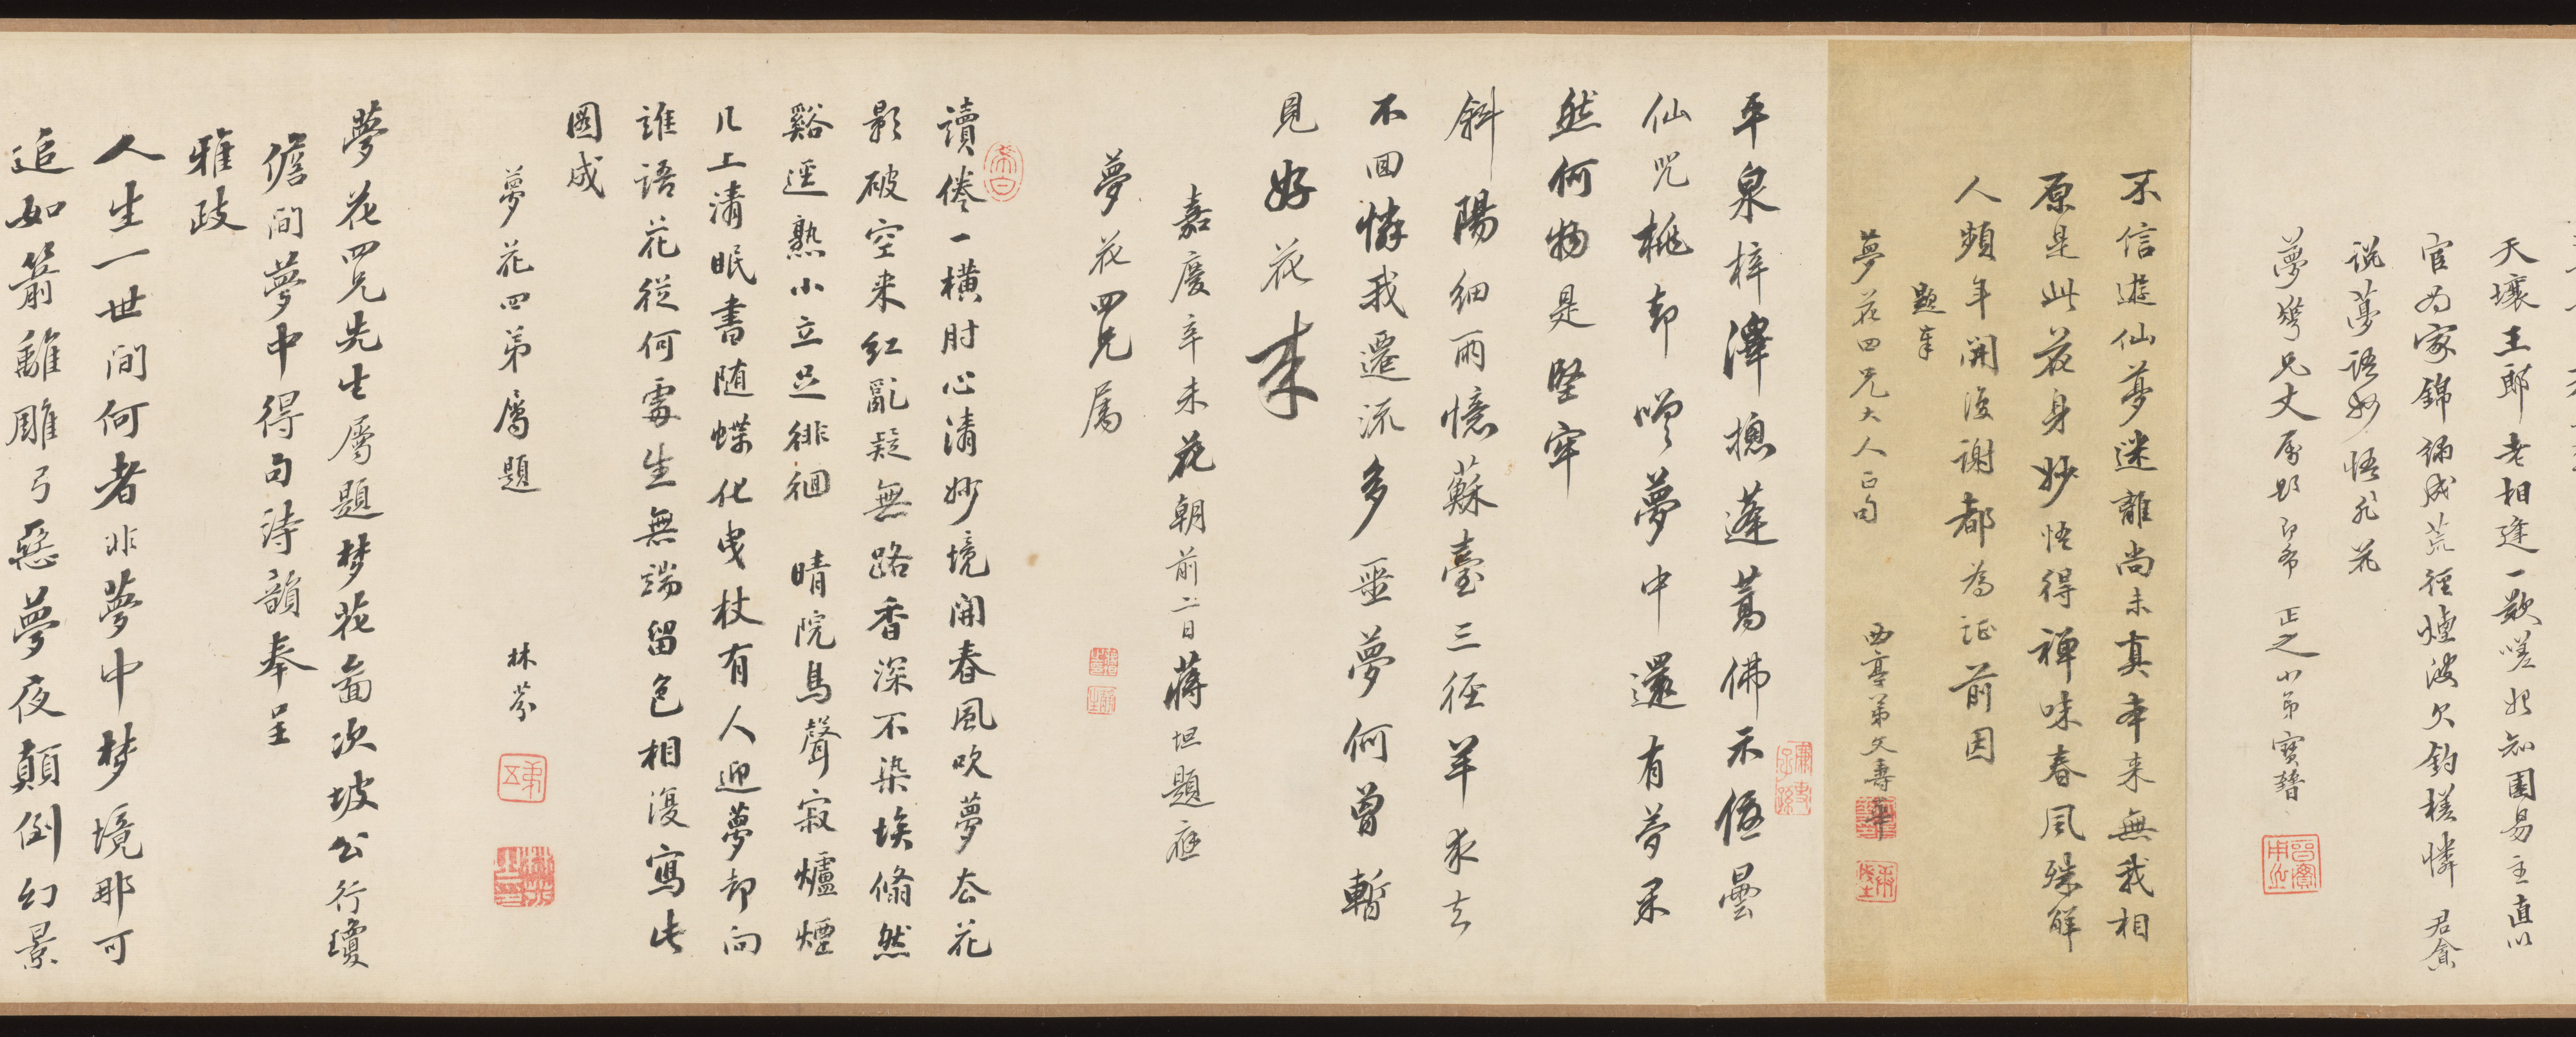 天壤王郎老相逢一歎嗟始知園易主直以
官為家錦繡成荒徑煙波欠釣槎憐君貪
說夢語妙悟死花
夢華兄大人屬題即希正之小弟寶鐕
不信遊仙夢迷離尚未真本来無我相
原是此花身妙悟得禪味春風殊解
人頻年開復謝都為証前因
題奉
夢花四兄大人正句
西亭弟文壽華
平泉梓澤摠蓬蒿佛示優曇
仙咒桃却嘆夢中還有夢杲
然何物是堅牢
斜陽細雨憶蘇臺三径羊求去
不回憐我遷流多噩夢何曾暫
見好花来
嘉慶辛未花朝前二日蔣坦題應
夢花四兄屬
讀倦一横肘心清妙境開春風吹夢去花
影破空来紅亂疑無路香深不染埃翛然
谿逕熟小立足徘徊 晴院鳥聲寂爐煙
几上清眠書随蝶化曳杖有人迎夢却向
誰語花從何處生無端留色相漫寫此
圖成
夢花四弟屬題
林芬
夢花四兄先生屬題梦花圖次坡公行瓊
儋間夢中得句詩韻奉呈
雅政
人生一世間何者非夢中梦境那可
追如箭離雕弓惡夢夜顛倒幻景